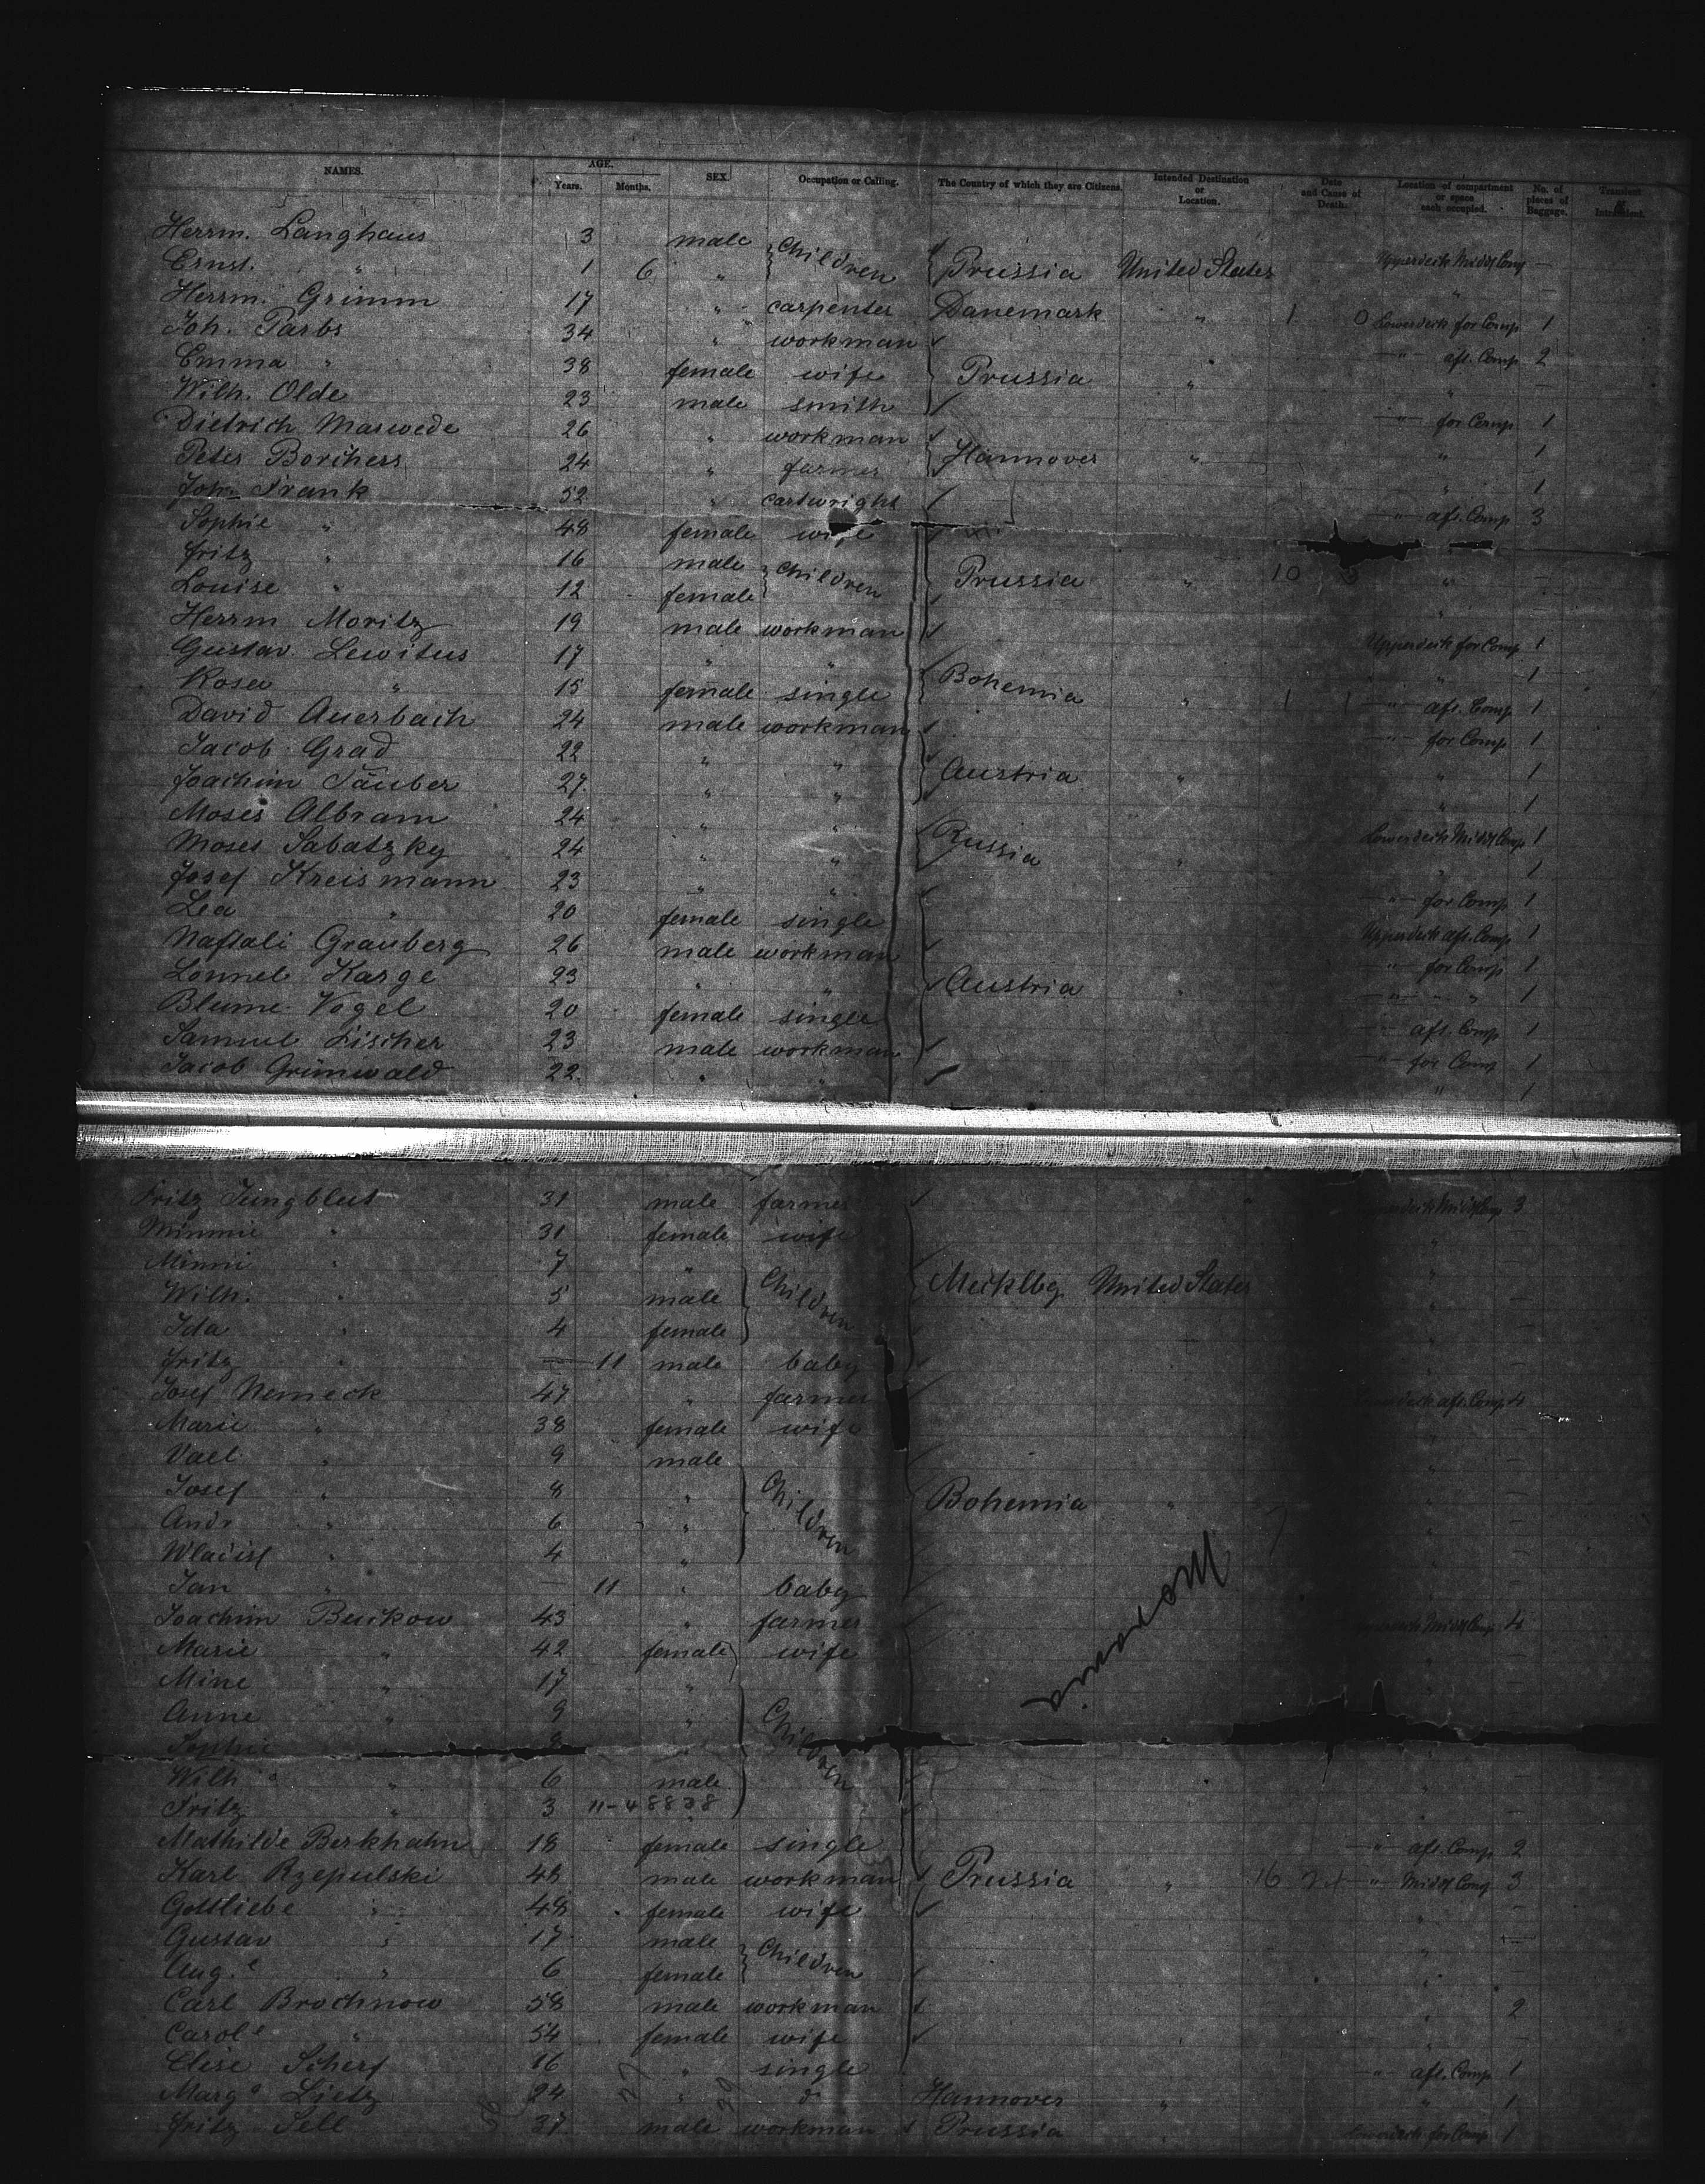 NAMES. AGE. Years. Months. SEX. Occupation or Calling. The Country of which they are Citizens. Intended Destination or Location. Date and Cause of Death. Location of compartment or space each occupied. No. of pieces of Baggage. Transient or Intransient.
Herrm. Langhaus 3 male Children Prussia United States Upperdeck Middl Comp —
Ernst. " 1 6 " " —
Herrm. Grimm 17 " carpenter Danemark " 1 0 Lowerdeck for Comp 1
Joh. Parbs 34 " workman " — aft. Comp 2
Emma " 38 female wife Prussia " " —
Wilh. Olde 23 male smith — " — for Comp 1
Dietrich Marwede 26 " workman Hannover " " 1
Peter Borchers 24 " farmer " 1
Joh. Frank 52 " cartwright — " — aft. Comp 3
Sophie " 48 female wife
Fritz " 16 male Children Prussia " 10 " —
Louise " 12 female " —
Herrm Moritz 19 male workman Upperdeck for Comp 1
Gustav Lewitus 17 " " Bohemia " 1
Rosa " 15 female single " 1 1 — " — aft. Comp 1
David Auerbach 24 male workman — " — for Comp 1
Jacob Grad 22 " " Austria " " 1
Joachim Täuber 27 " " " 1
Moses Albram 24 " " Russia Lowerdeck Middl Comp 1
Moses Sabatzky 24 " " " " 1
Josef Kreismann 23 " " — " — for Comp 1
Lea " 20 female single Upperdeck aft. Comp 1
Naftali Grauberg 26 male workman — " — for Comp 1
Lonnel Karge 23 " " Austria " — " — " " 1
Blume Vogel 20 female single " aft. Comp 1
Samuel Lischer 23 male workman — " — for Comp 1
Jacob Grünwald 22 " " " 1
Fritz Jungblut 31 male farmer Middl Comp 3
Minnie " 31 female wife " —
Minni " 7 " Children Mecklbg. United States " —
Wilh. " 5 male " —
Ida " 4 female " —
Fritz " — 11 male baby " —
Josef Nemeck 47 " farmer aft. Comp 4
Marie " 38 female wife " —
Vacl. " 9 male " —
Josef " 8 " Children Bohemia " " —
Andr " 6 " " —
Wladisl " 4 " " —
Jan " — 11 " baby " —
Joachim Buckow 43 " farmer Middl Comp 4
Marie " 42 female wife " —
Mine " 17 " " —
Anne " 9 " Children
Sophie 8 " "
Wilh " 6 male " —
Fritz " 3 11-48828 " " —
Mathilde Berkhahn 18 female single — " — aft. Comp 2
Karl Rzepulski 48 male workman Prussia " 16 — " — Middl Comp 3
Gottliebe " 48 female wife " —
Gustav " 17 male Children " —
Aug.e " 6 female " —
Carl Brochnow 58 male workman " 2
Carole " 54 female wife " —
Elise Scherf 16 " single — " — aft. Comp 1
Marg.e Lietz 24 " do Hannover " " 1
Fritz Sell 37 male workman Prussia " Lowerdeck for Comp 1